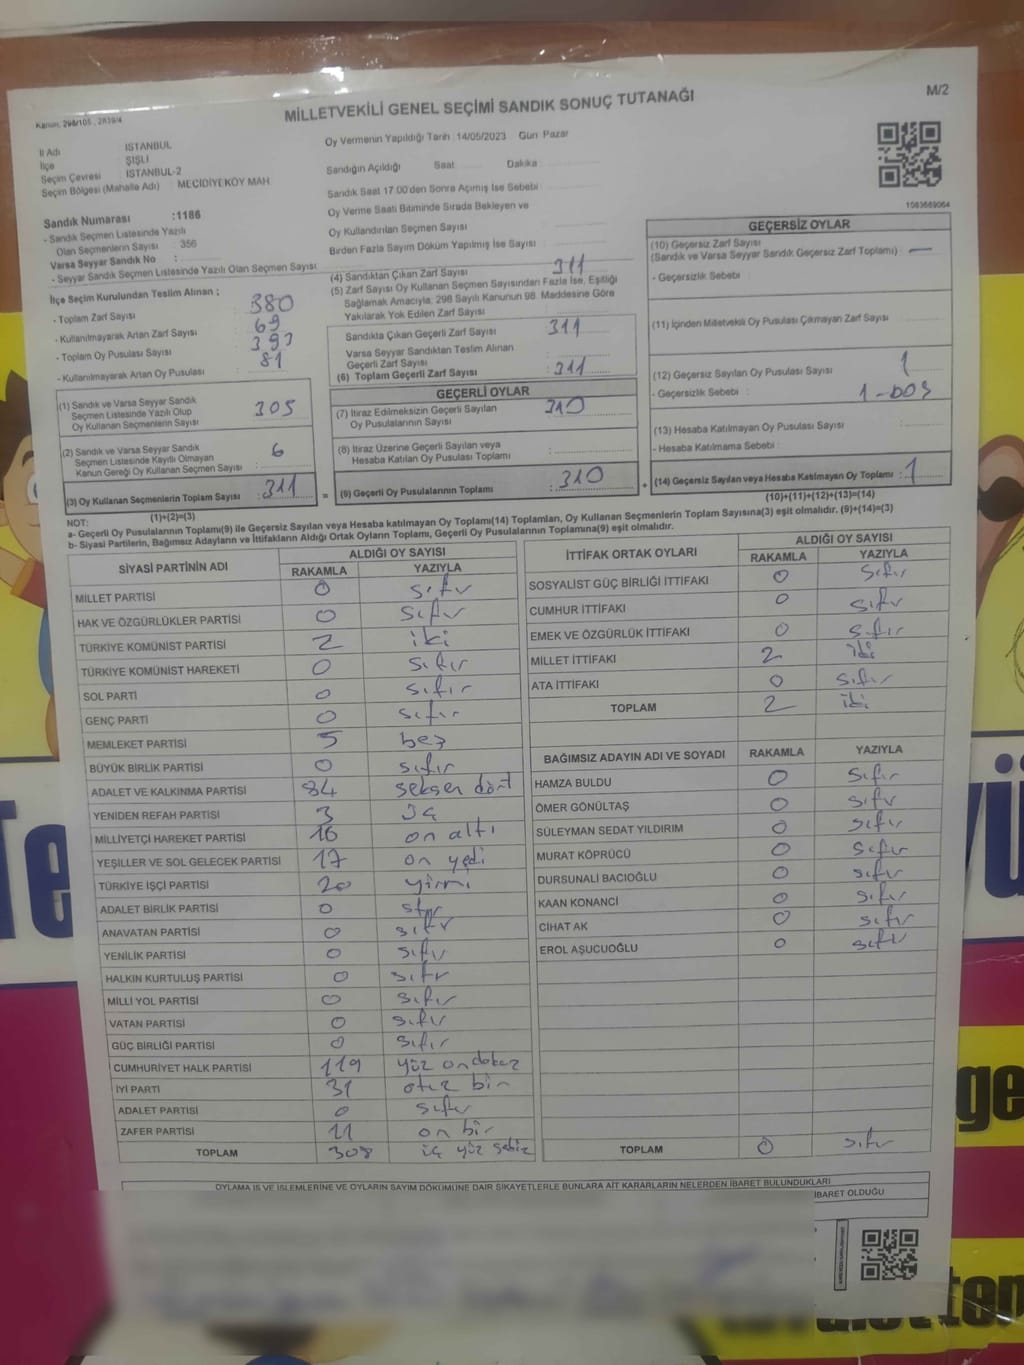 Kanun, 298/105 , 2839/4
MİLLETVEKİLİ GENEL SEÇİMİ SANDIK SONUÇ TUTANAĞI
M/2
İl Adı İSTANBUL
İlçe ŞİŞLİ
Seçim Çevresi : İSTANBUL-2
Seçim Bölgesi (Mahalle Adı) : MECİDİYEKÖY MAH.
Oy Vermenin Yapıldığı Tarih : 14/05/2023 Gün Pazar
Sandığın Açıldığı Saat Dakika
Sandık Saat 17.00'den Sonra Açımış İse Sebebi
Oy Verme Saati Bitiminde Sırada Bekleyen ve
Oy Kullandırılan Seçmen Sayısı
Birden Fazla Sayım Döküm Yapılmış İse Sayısı
1083689064
Sandık Numarası :1186
- Sandık Seçmen Listesinde Yazılı
Olan Seçmenlerin Sayısı : 356
Varsa Seyyar Sandık No :
- Seyyar Sandık Seçmen Listesinde Yazılı Olan Seçmen Sayısı
İlçe Seçim Kurulundan Teslim Alınan ;
- Toplam Zarf Sayısı : 380
- Kullanılmayarak Artan Zarf Sayısı : 69
- Toplam Oy Pusulası Sayısı : 393
- Kullanılmayarak Artan Oy Pusulası : 81
(1) Sandık ve Varsa Seyyar Sandık
Seçmen Listesinde Yazılı Olup
Oy Kullanan Seçmenlerin Sayısı : 305
(2) Sandık ve Varsa Seyyar Sandık
Seçmen Listesinde Kayıtlı Olmayan
Kanun Gereği Oy Kullanan Seçmen Sayısı : 6
(3) Oy Kullanan Seçmenlerin Toplam Sayısı : 311
(1)+(2)=(3)
(4) Sandıktan Çıkan Zarf Sayısı : 311
(5) Zarf Sayısı Oy Kullanan Seçmen Sayısından Fazla İse, Eşitliği
Sağlamak Amacıyla, 298 Sayılı Kanunun 98. Maddesine Göre
Yakılarak Yok Edilen Zarf Sayısı
Sandıkta Çıkan Geçerli Zarf Sayısı : 311
Varsa Seyyar Sandıktan Teslim Alınan
Geçerli Zarf Sayısı
(6) Toplam Geçerli Zarf Sayısı : 311
GEÇERLİ OYLAR
(7) İtiraz Edilmeksizin Geçerli Sayılan
Oy Pusulalarının Sayısı : 310
(8) İtiraz Üzerine Geçerli Sayılan veya
Hesaba Katılan Oy Pusulası Toplamı
= (9) Geçerli Oy Pusulalarının Toplamı : 310
GEÇERSİZ OYLAR
(10) Geçersiz Zarf Sayısı
(Sandık ve Varsa Seyyar Sandık Geçersiz Zarf Toplamı) : —
- Geçersizlik Sebebi :
(11) İçinden Milletvekili Oy Pusulası Çıkmayan Zarf Sayısı
(12) Geçersiz Sayılan Oy Pusulası Sayısı : 1
- Geçersizlik Sebebi :
(13) Hesaba Katılmayan Oy Pusulası Sayısı
- Hesaba Katılmama Sebebi :
+ (14) Geçersiz Sayılan veya Hesaba Katılmayan Oy Toplamı : 1
(10)+(11)+(12)+(13)=(14)
NOT:
a- Geçerli Oy Pusulalarının Toplamı(9) ile Geçersiz Sayılan veya Hesaba katılmayan Oy Toplamı(14) Toplamları, Oy Kullanan Seçmenlerin Toplam Sayısına(3) eşit olmalıdır. (9)+(14)=(3)
b- Siyasi Partilerin, Bağımsız Adayların ve İttifakların Aldığı Ortak Oyların Toplamı, Geçerli Oy Pusulalarının Toplamına(9) eşit olmalıdır.
SİYASİ PARTİNİN ADI ALDIĞI OY SAYISI
RAKAMLA YAZIYLA
MİLLET PARTİSİ 0 sıfır
HAK VE ÖZGÜRLÜKLER PARTİSİ 0 sıfır
TÜRKİYE KOMÜNİST PARTİSİ 2 iki
TÜRKİYE KOMÜNİST HAREKETİ 0 sıfır
SOL PARTİ 0 sıfır
GENÇ PARTİ 0 sıfır
MEMLEKET PARTİSİ 5 beş
BÜYÜK BİRLİK PARTİSİ 0 sıfır
ADALET VE KALKINMA PARTİSİ 84 seksen dört
YENİDEN REFAH PARTİSİ 3 üç
MİLLİYETÇİ HAREKET PARTİSİ 16 on altı
YEŞİLLER VE SOL GELECEK PARTİSİ 17 on yedi
TÜRKİYE İŞÇİ PARTİSİ 20 yirmi
ADALET BİRLİK PARTİSİ 0 sıfır
ANAVATAN PARTİSİ 0 sıfır
YENİLİK PARTİSİ 0 sıfır
HALKIN KURTULUŞ PARTİSİ 0 sıfır
MİLLİ YOL PARTİSİ 0 sıfır
VATAN PARTİSİ 0 sıfır
GÜÇ BİRLİĞİ PARTİSİ 0 sıfır
CUMHURİYET HALK PARTİSİ 119 yüz ondokuz
İYİ PARTİ 31 otuz bir
ADALET PARTİSİ 0 sıfır
ZAFER PARTİSİ 11 on bir
TOPLAM 308 üç yüz sekiz
İTTİFAK ORTAK OYLARI ALDIĞI OY SAYISI
RAKAMLA YAZIYLA
SOSYALİST GÜÇ BİRLİĞİ İTTİFAKI 0 sıfır
CUMHUR İTTİFAKI 0 sıfır
EMEK VE ÖZGÜRLÜK İTTİFAKI 0 sıfır
MİLLET İTTİFAKI 2 iki
ATA İTTİFAKI 0 sıfır
TOPLAM 2 iki
BAĞIMSIZ ADAYIN ADI VE SOYADI RAKAMLA YAZIYLA
HAMZA BULDU 0 sıfır
ÖMER GÖNÜLTAŞ 0 sıfır
SÜLEYMAN SEDAT YILDIRIM 0 sıfır
MURAT KÖPRÜCÜ 0 sıfır
DURSUNALİ BACIOĞLU 0 sıfır
KAAN KONANCİ 0 sıfır
CİHAT AK 0 sıfır
EROL AŞUCUOĞLU 0 sıfır
TOPLAM 0 sıfır
OYLAMA İŞ VE İŞLEMLERİNE VE OYLARIN SAYIM DÖKÜMÜNE DAİR ŞİKAYETLERLE BUNLARA AİT KARARLARIN NELERDEN İBARET BULUNDUKLARI
İBARET OLDUĞU